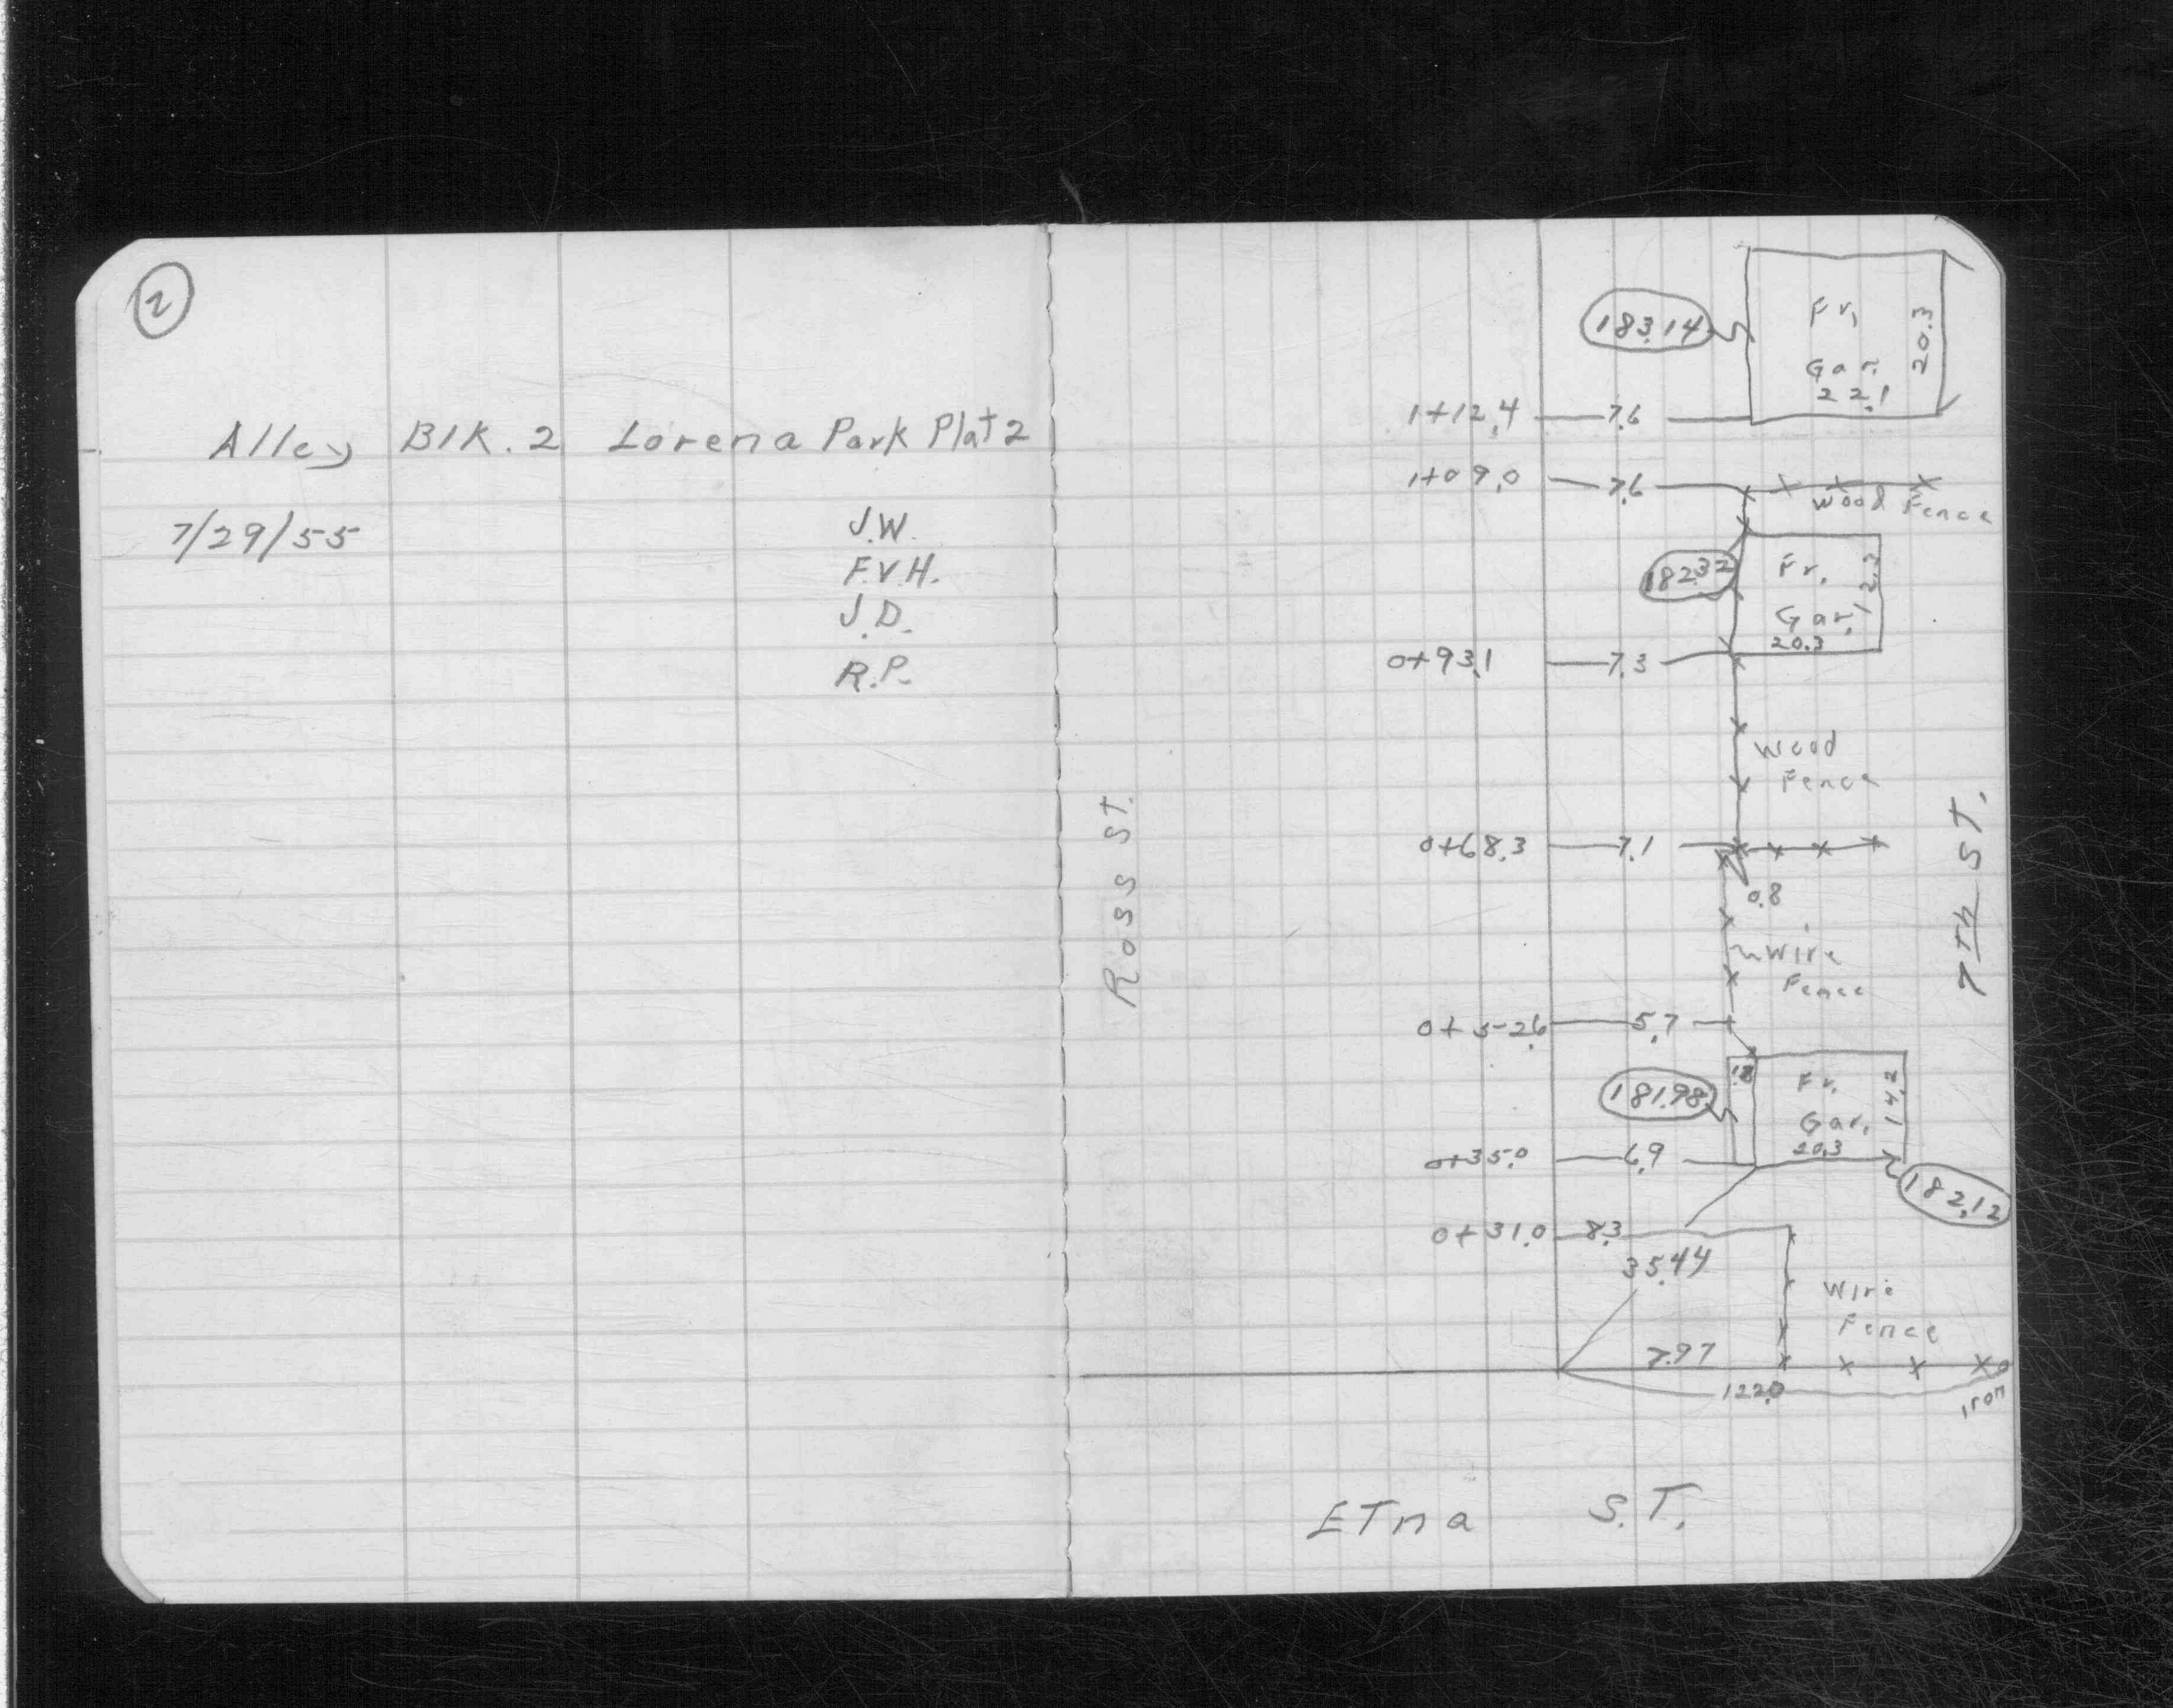 2
Alley Blk. 2 Lorena Park Plat 2
7/29/55
J.W.
F.V.H.
J.D.
R.P.
Ross ST.
7TH ST.
183.14
Fr.
Gar.
22.1
20.3
1+12.4 7.6
1+09.0 7.6
Wood Fence
182.32
Fr.
Gar.
20.3
12.3
0+93.1 7.3
Wood
Fence
0+68.3 7.1
0.8
Wire
Fence
0+52.6 5.7
181.98
1.8
Fr.
Gar.
20.3
14.2
0+35.0 6.9
182.12
0+31.0 8.3
35.44
Wire
Fence
7.97
122.0
iron
ETna S.T.